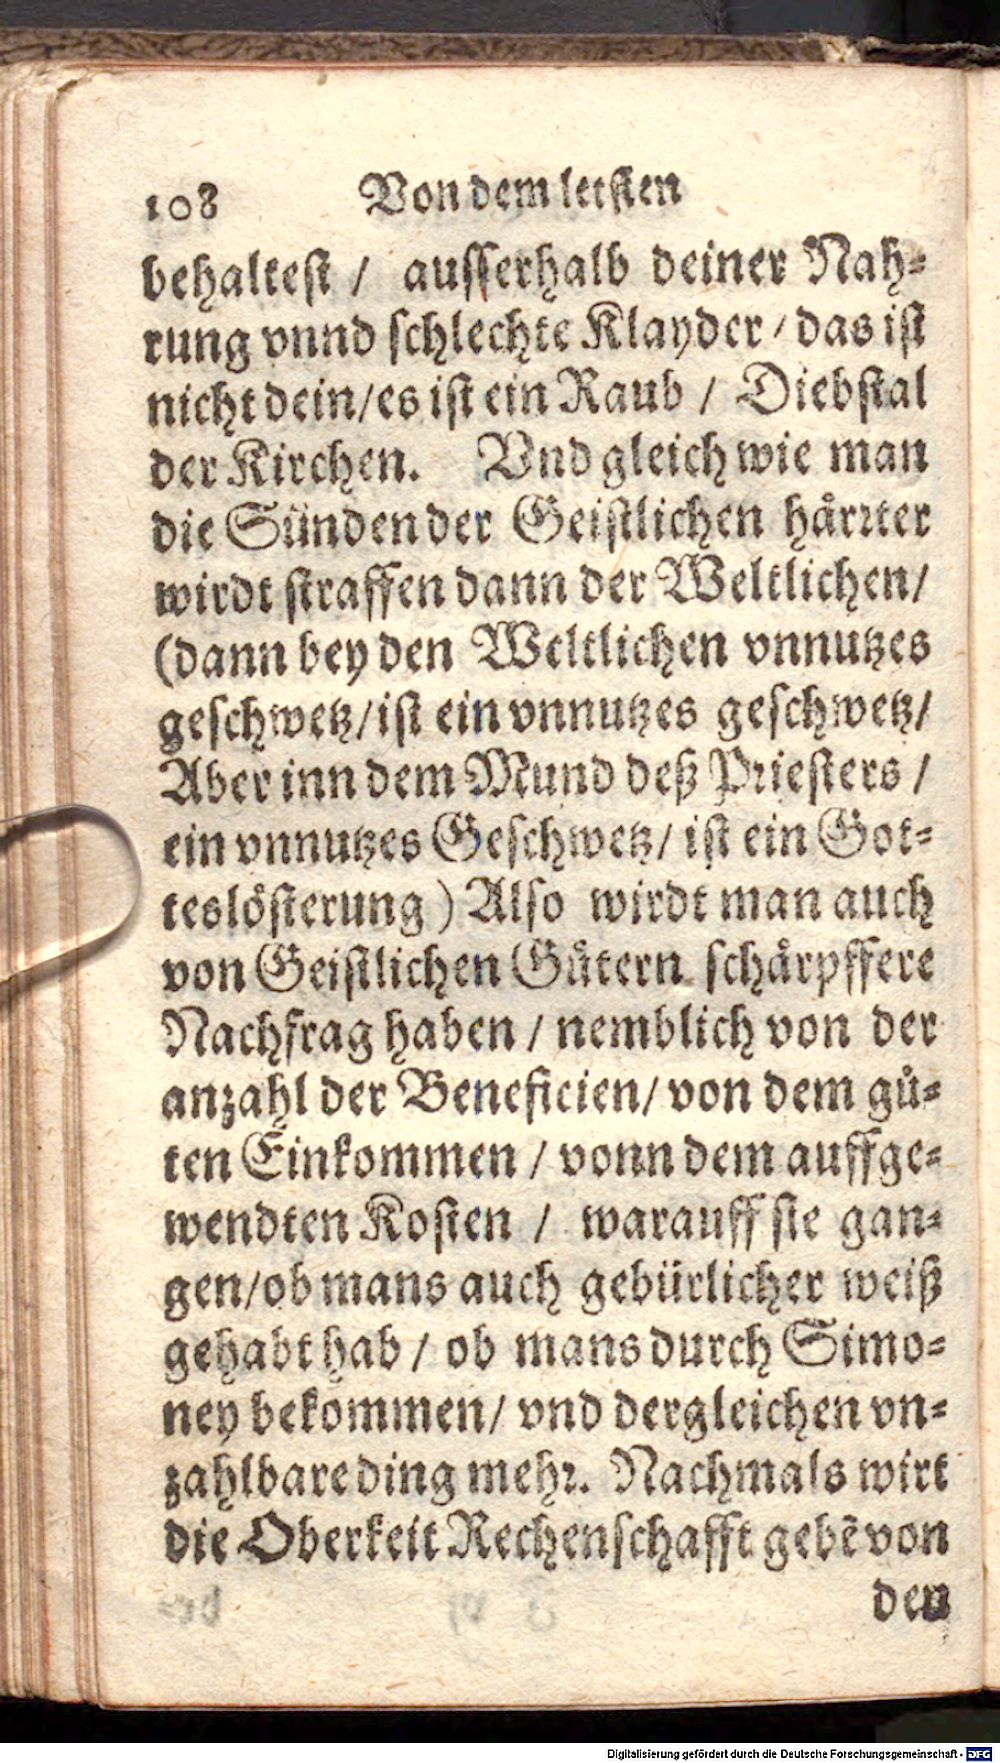 108 Von dem letsten
behaltest / ausserhalb deiner Nah-
rung vnnd schlechte Klayder / das ist
nicht dein / es ist ein Raub / Diebstal
der Kirchen. Vnd gleich wie man
die Sünden der Geistlichen haͤrter
wirdt straffen dann der Weltlichen /
(dann bey den Weltlichen vnnutzes
geschwetz / ist ein vnnutzes geschwetz /
Aber inn dem Mund deß Priesters /
ein vnnutzes Geschwetz / ist ein Got-
teslösterung) Also wirdt man auch
von Geistlichen Guͤtern schaͤrpffere
Nachfrag haben / nemblich von der
anzahl der Beneficien / von dem guͤ-
ten Einkommen / vonn dem auffge-
wendten Kosten / warauff sie gan-
gen / ob mans auch gebürlicher weiß
gehabt hab / ob mans durch Simo-
ney bekommen / vnd dergleichen vn-
zahlbare ding mehr. Nachmals wirt
die Oberkeit Rechenschafft gebẽ von
den
Digitalisierung gefördert durch die Deutsche Forschungsgemeinschaft - DFG